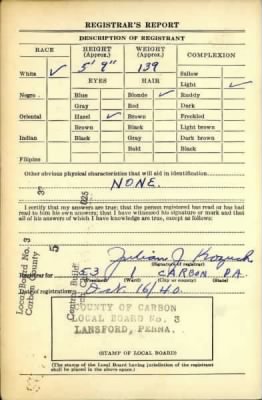 REGISTRAR'S REPORT
DESCRIPTION OF REGISTRANT
RACE HEIGHT (Approx.) WEIGHT (Approx.) COMPLEXION
5' 9" 139
White ✓ Sallow
EYES HAIR Light ✓
Negro Blue Blonde ✓ Ruddy
Gray Red Dark
Oriental Hazel ✓ Brown Freckled
Brown Black Light brown
Indian Black Gray Dark brown
Bald Black
Filipino
Other obvious physical characteristics that will aid in identification
NONE.
I certify that my answers are true; that the person registered has read or has had read to him his own answers; that I have witnessed his signature or mark and that all of his answers of which I have knowledge are true, except as follows:
Local Board No. 3
Carbon County
Julian J
(Signature of registrar)
Registrar for 53 1 CARBON PA.
(Precinct) (Ward) (City or County) (State)
Date of registration Oct. 16/40.
COUNTY OF CARBON
LOCAL BOARD No. 3
LANSFORD, PENNA.
(STAMP OF LOCAL BOARD)
(The stamp of the Local Board having jurisdiction of the registrant
shall be placed in the above space.)